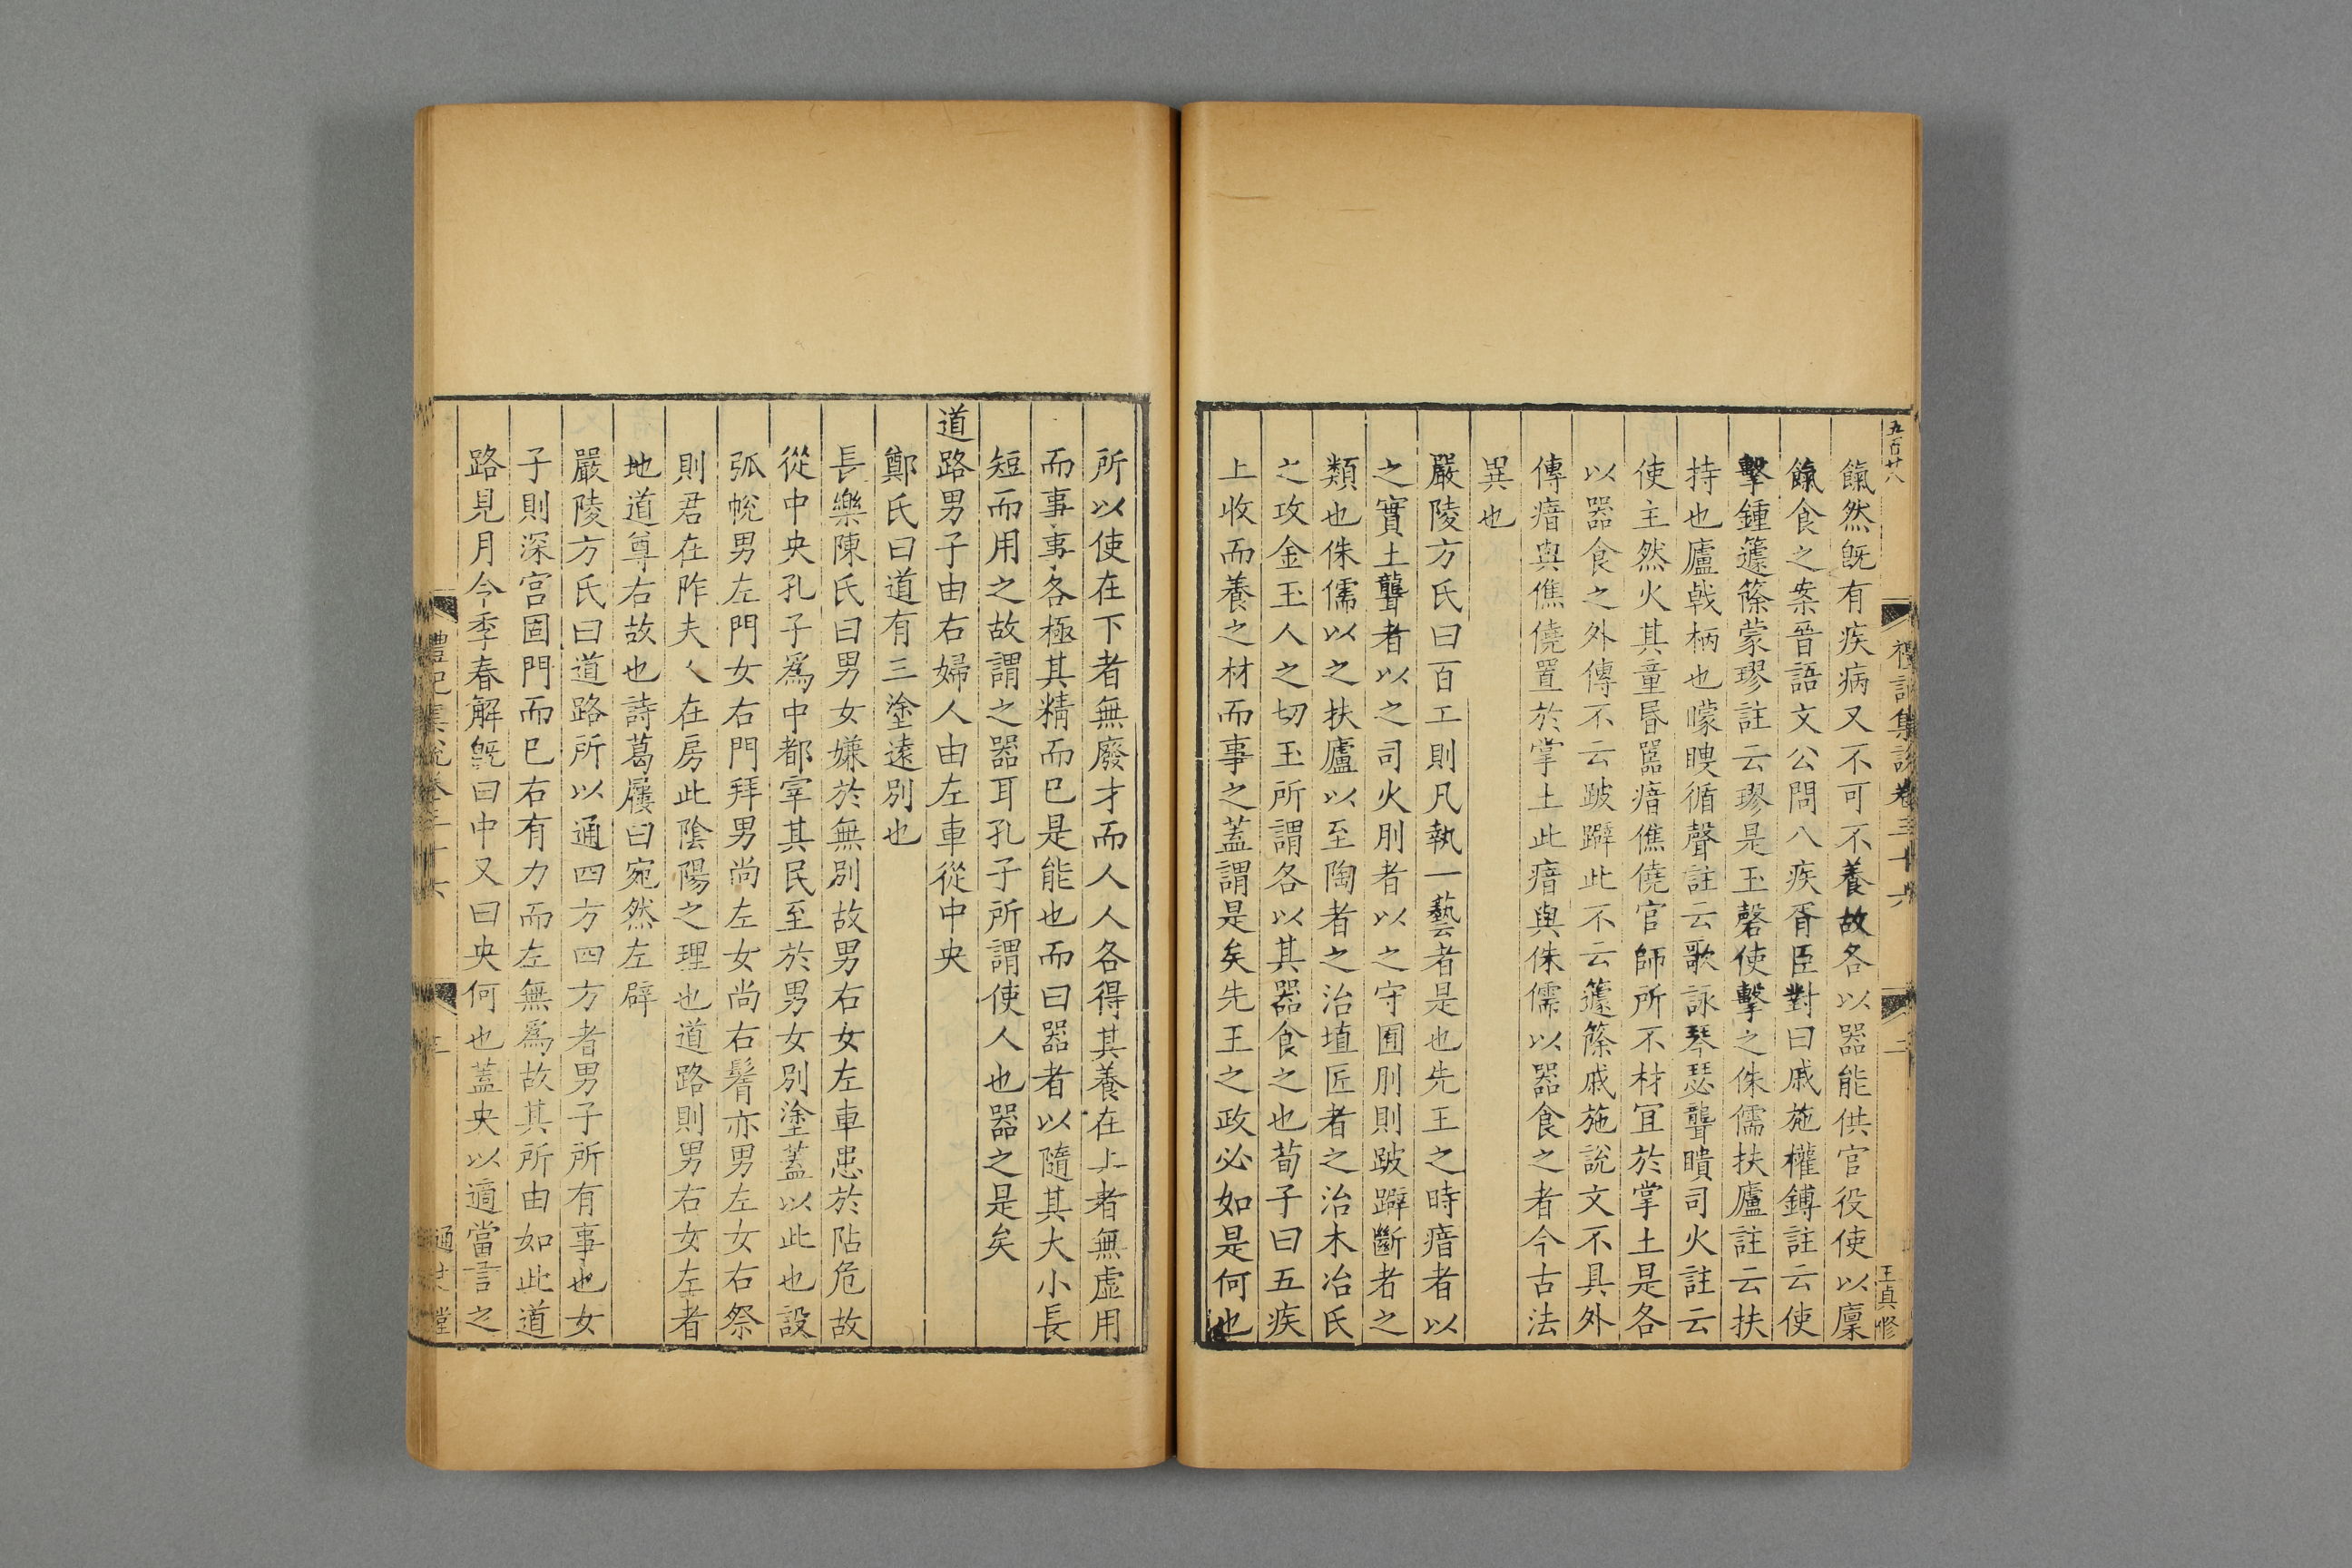 五百廿八
禮記集說卷三十六
二
王真修
餼然旣有疾病又不可不養故各以器能供官役使以廩
餼食之案晉語文公問八疾胥臣對曰戚施權鏄註云使
擊鍾籧篨蒙璆註云璆是玉磬使擊之侏儒扶廬註云扶
持也廬戟柄也矇瞍循聲註云歌詠琴瑟聾聵司火註云
使主然火其童昬嚚瘖僬僥官師所不材宜於掌土是各
以器食之外傳不云跛躃此不云籧篨戚施說文不具外
傳瘖與僬僥置於掌土此瘖與侏儒以器食之者今古法
異也
嚴陵方氏曰百工則凡執一藝者是也先王之時瘖者以
之實土聾者以之司火刖者以之守囿刖則跛躃斷者之
類也侏儒以之扶廬以至陶者之治埴匠者之治木冶氏
之攻金玉人之切玉所謂各以其器食之也荀子曰五疾
上收而養之材而事之蓋謂是矣先王之政必如是何也
所以使在下者無廢才而人人各得其養在上者無虛用
而事事各極其精而已是能也而曰器者以隨其大小長
短而用之故謂之器耳孔子所謂使人也器之是矣
道路男子由右婦人由左車從中央
鄭氏曰道有三塗遠別也
長樂陳氏曰男女嫌於無別故男右女左車患於阽危故
從中央孔子爲中都宰其民至於男女別塗蓋以此也設
弧帨男左門女右門拜男尚左女尚右鬌亦男左女右祭
則君在阼夫〻在房此陰陽之理也道路則男右女左者
地道尊右故也詩葛屨曰宛然左辟
嚴陵方氏曰道路所以通四方四方者男子所有事也女
子則深宮固門而已右有力而左無爲故其所由如此道
路見月令季春解旣曰中又曰央何也蓋央以適當言之
禮記集說卷三十六
三
通志堂